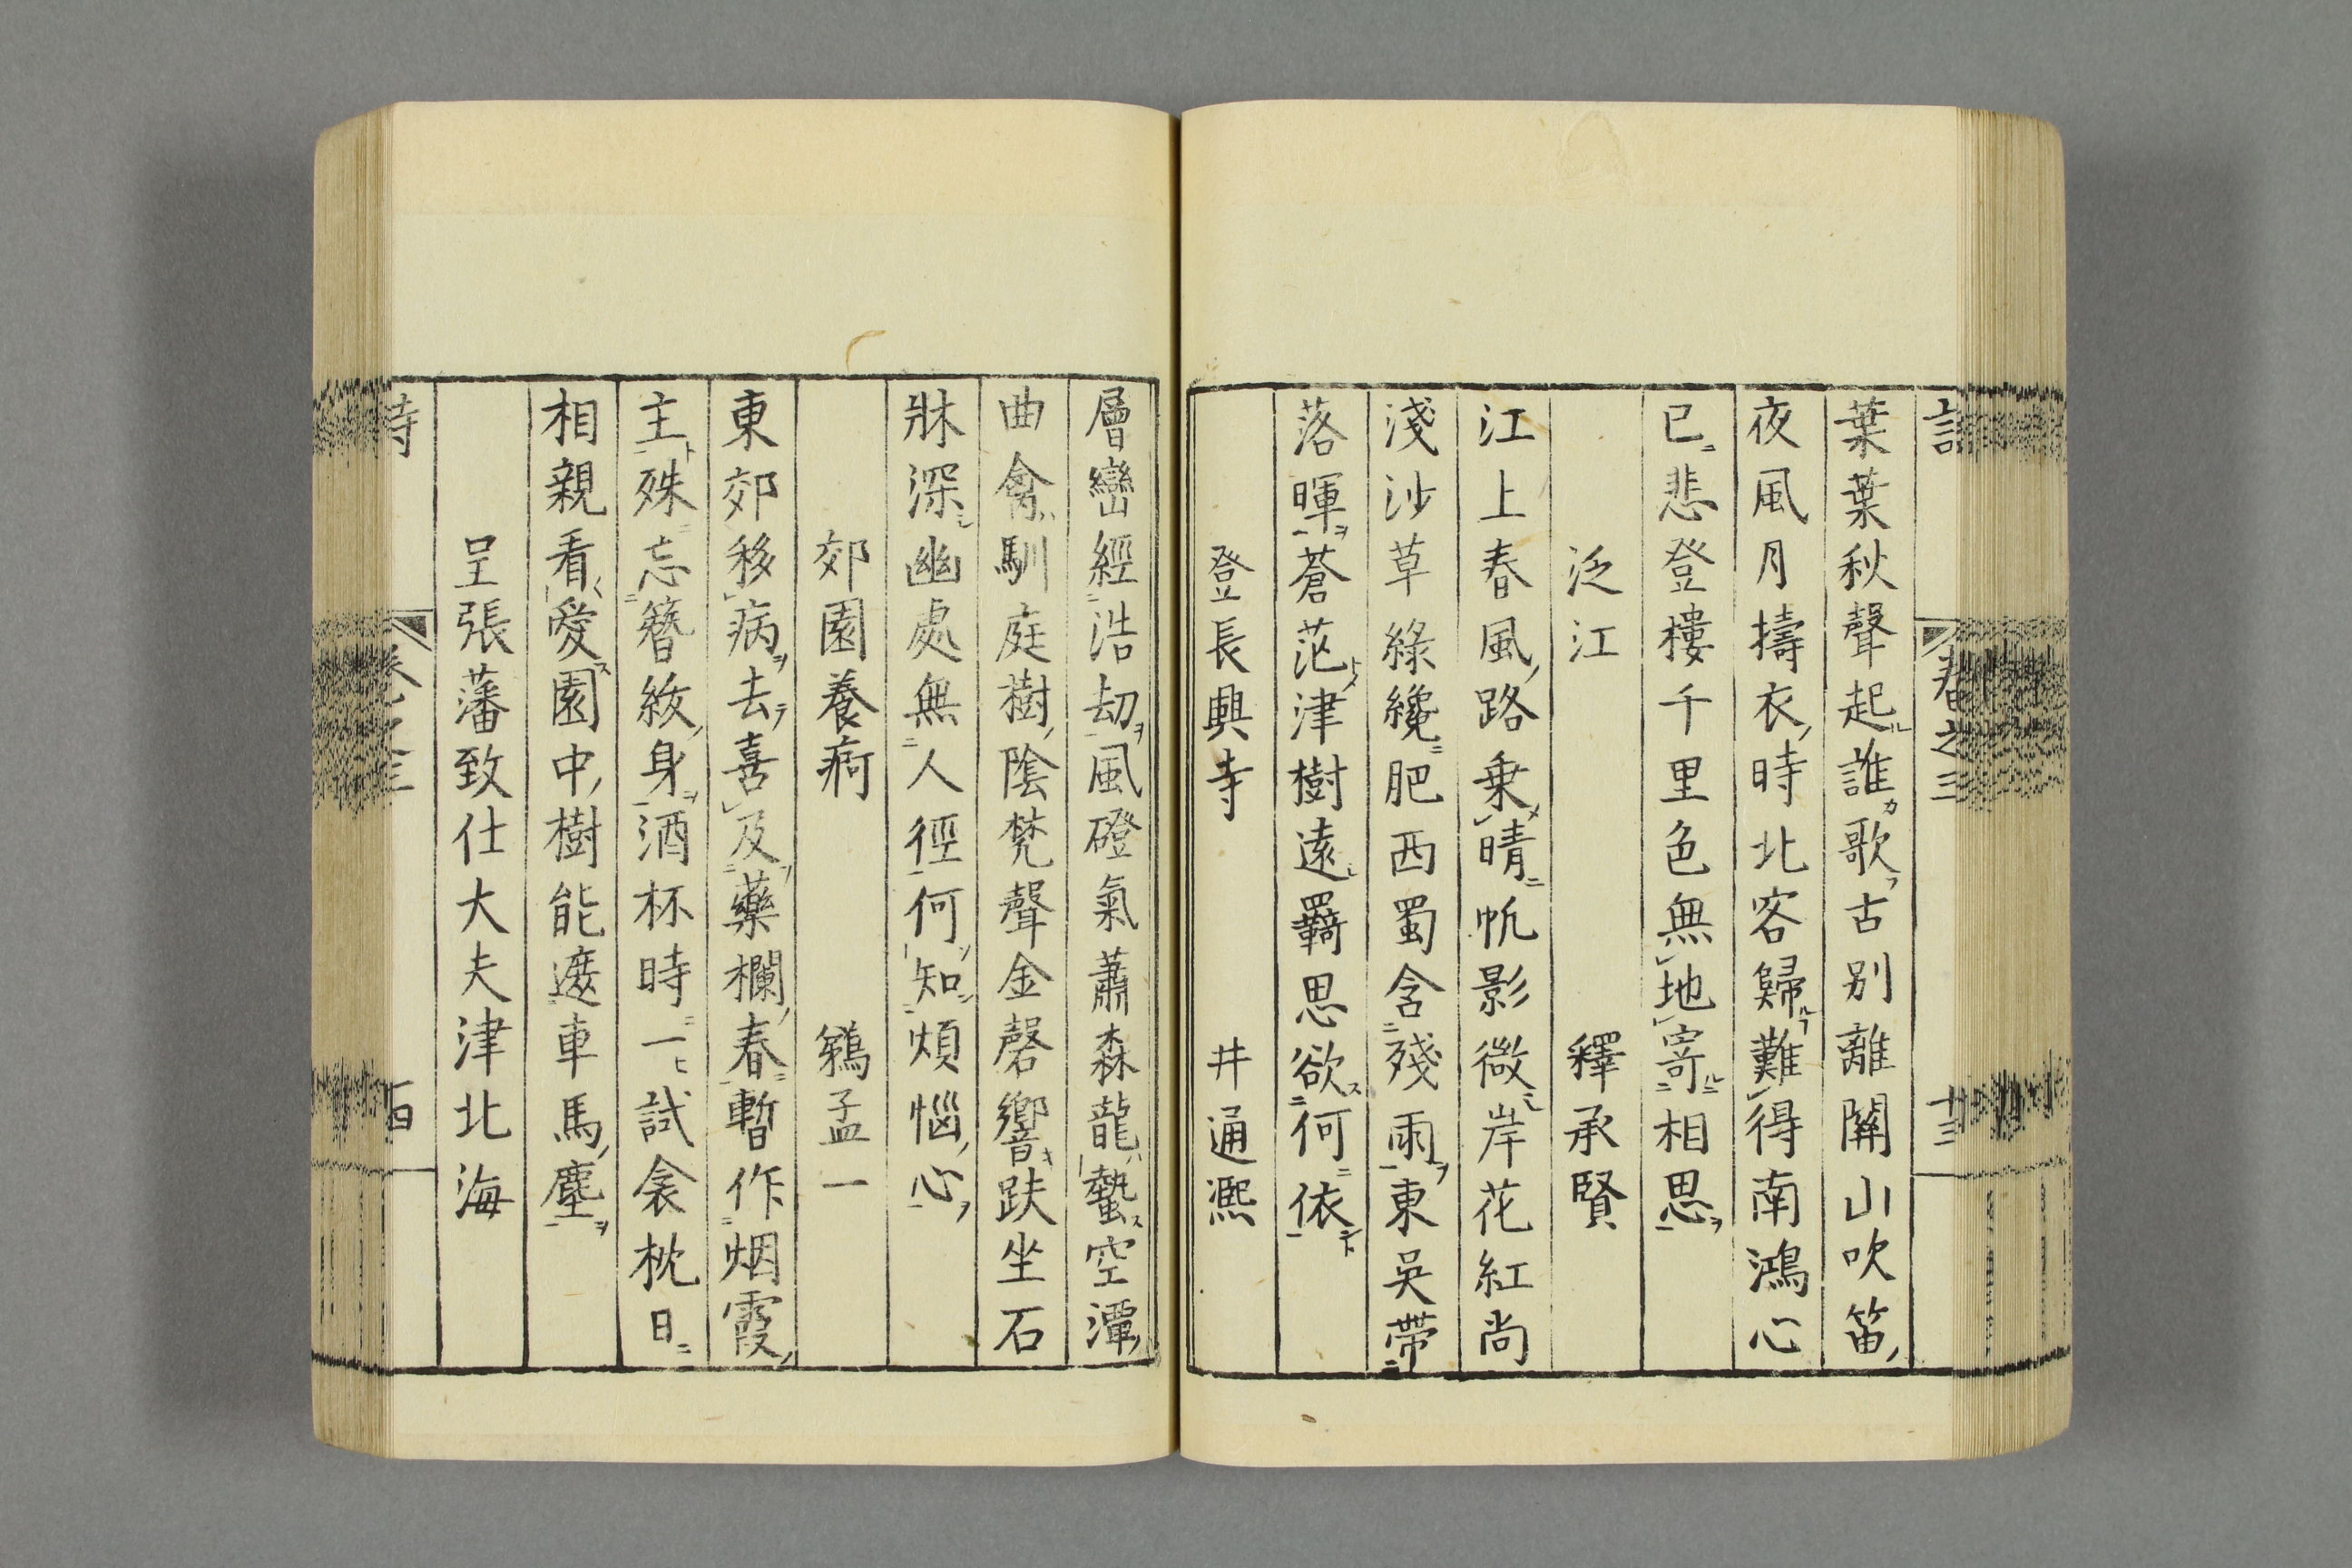 葉葉秋聲起誰歌古别離關山吹笛
夜風月擣衣時北客歸難得南鴻心
已悲登樓千里色無地寄相思
泛江 釋承賢
江上春風路乗晴帆影微岸花紅尚
淺沙草綠纔肥西蜀含殘雨東吳帶
落暉蒼茫津樹遠羇思欲何依
登長興寺 井通熙
層巒經浩劫風磴氣蕭森龍蟄空潭
曲禽馴庭樹陰梵聲金磬響趺坐石
牀深幽處無人徑何知煩惱心
郊園養痾 鵜孟一
東郊移病去喜及藥欄春暫作烟霞
主殊忘簪紱身酒杯時一試衾枕日
相親看愛園中樹能遮車馬塵
呈張藩致仕大夫津北海